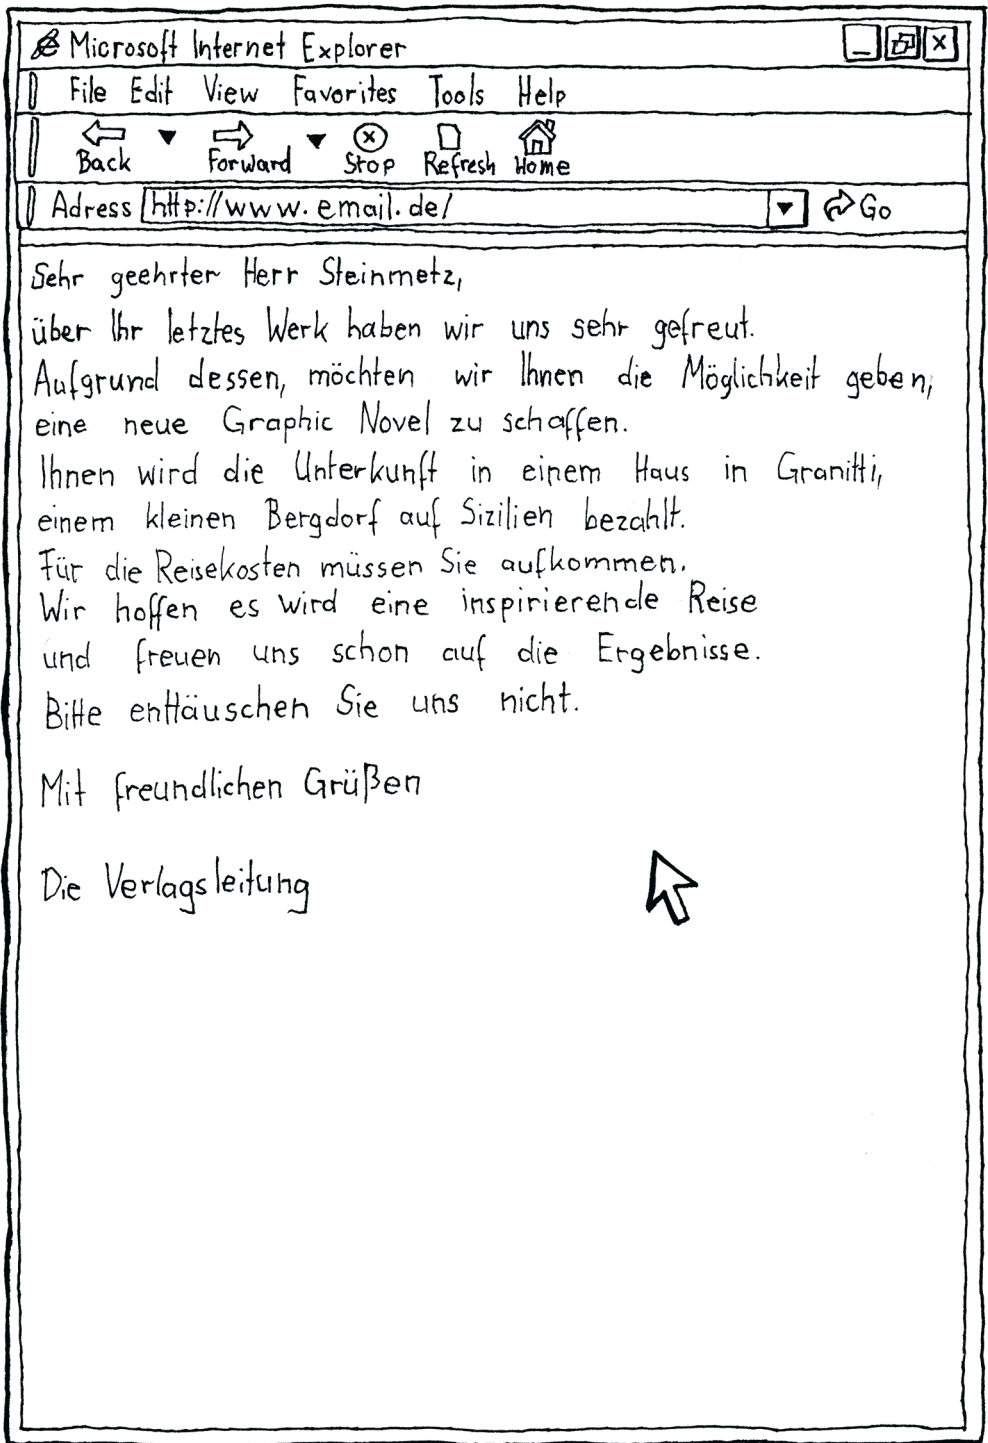 Microsoft Internet Explorer
File Edit View Favorites Tools Help
Back Forward Stop Refresh Home
Adress http://www.email.de/ Go
Sehr geehrter Herr Steinmetz,
über Ihr letztes Werk haben wir uns sehr gefreut.
Aufgrund dessen, möchten wir Ihnen die Möglichkeit geben,
eine neue Graphic Novel zu schaffen.
Ihnen wird die Unterkunft in einem Haus in Granitti,
einem kleinen Bergdorf auf Sizilien bezahlt.
Für die Reisekosten müssen Sie aufkommen.
Wir hoffen es wird eine inspirierende Reise
und freuen uns schon auf die Ergebnisse.
Bitte enttäuschen Sie uns nicht.
Mit freundlichen Grüßen
Die Verlagsleitung